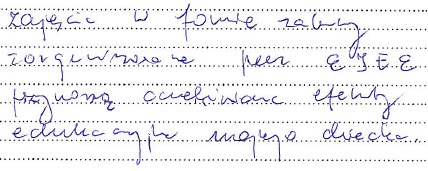 Zajęcia w formie zabawy
zorganizowane przez EJEE
przynoszą oczekiwane efekty
edukacyjne mojego dziecka.